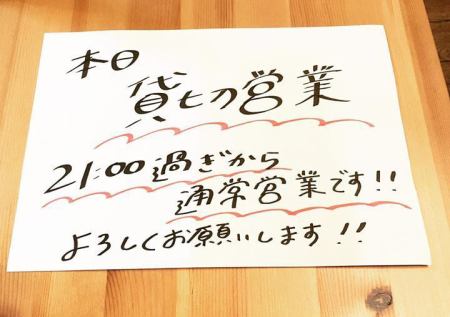 本日
貸切営業
21:00過ぎから
通常営業です!!
よろしくお願いします!!